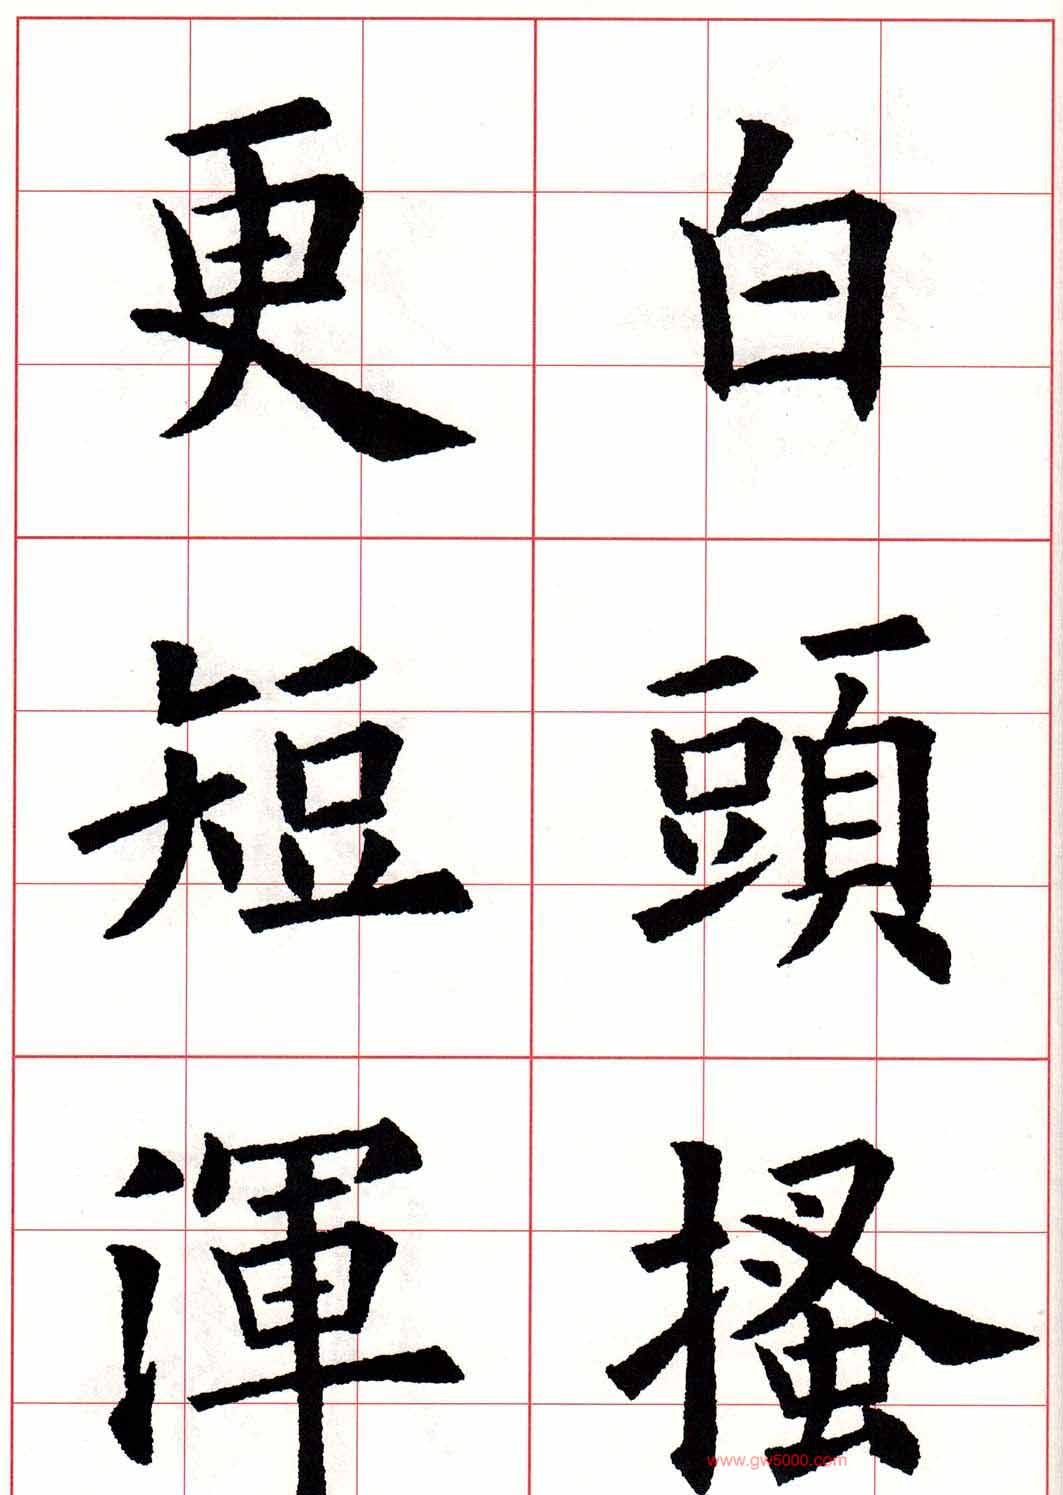 白頭搔
更短渾
www.gw5000.com